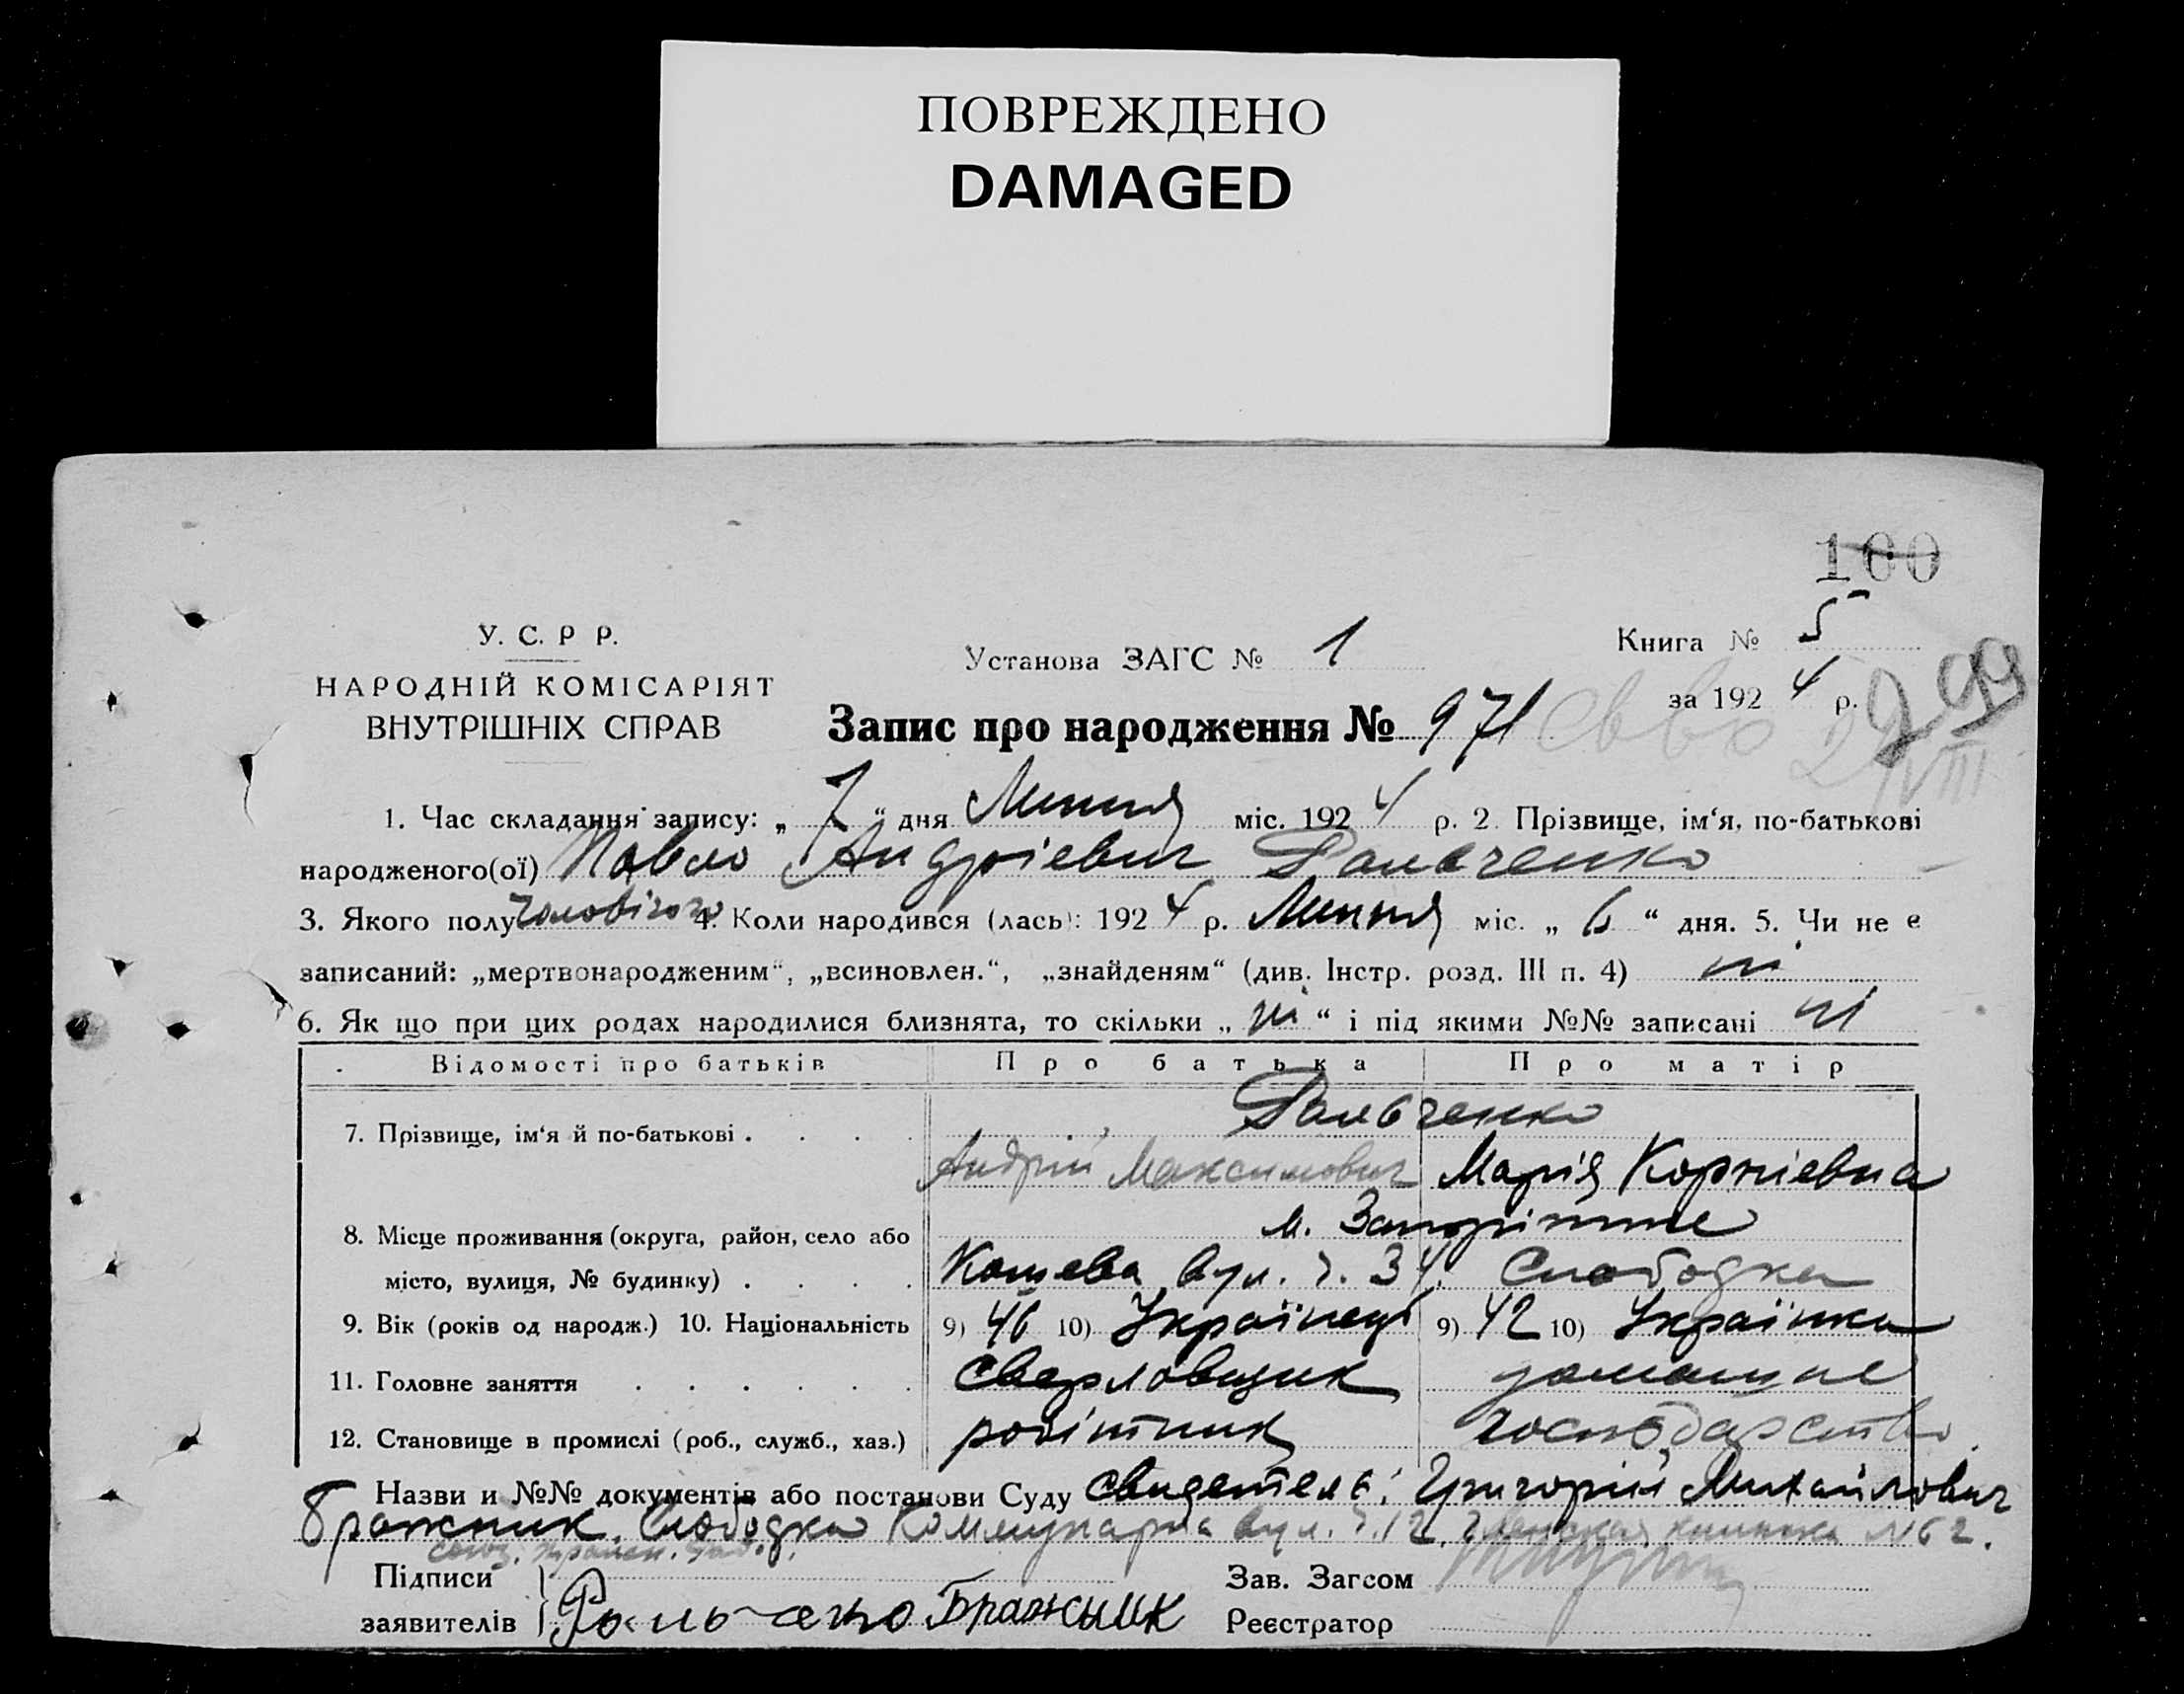 ПОВРЕЖДЕНО
DAMAGED
100
У. С. Р Р.
НАРОДНІЙ КОМІСАРІЯТ
ВНУТРІШНІХ СПРАВ
Установа ЗАГС № 1
Книга № 5
за 1924 р.
299
Запис про народження № 971
VIII
1. Час складання запису: „ 7 “ дня Липня міс. 1924 р. 2. Прізвище, ім‘я, по-батькові
народженого(ої) Павло Андріевич
3. Якого полу чоловічого 4. Коли народився (лась): 1924 р. Липня міс. „ 6 “ дня. 5. Чи не є
записаний: „мертвонародженим“, „всиновлен.“, „знайденям“ (див. Інстр. розд. III п. 4) ні
6. Як що при цих родах народилися близнята, то скільки „ ні “ і під якими №№ записані ні
Відомості про батьків Про батька Про матір
7. Прізвище, ім‘я й по-батькові . . . .
Андрій Максимович Марія Корніевна
8. Місце проживання (округа, район, село або м. Запоріжжє
місто, вулиця, № будинку) . . . . Кошева вул. ч. 34. Слободка
9. Вік (років од народж.) 10. Національність 9) 46 10) Українець 9) 42 10) Українка
11. Головне заняття . . . . . . Сверловщик домашне
12. Становище в промислі (роб., служб., хаз.) робітник господарство.
Назви и №№ документів або постанови Суду свидетель: Григорій Михайлович
Бражник. Слободка Коммунарна вул. ч. 12, книжка № 62.
Підписи
заявителів Бражник
Зав. Загсом
Реєстратор